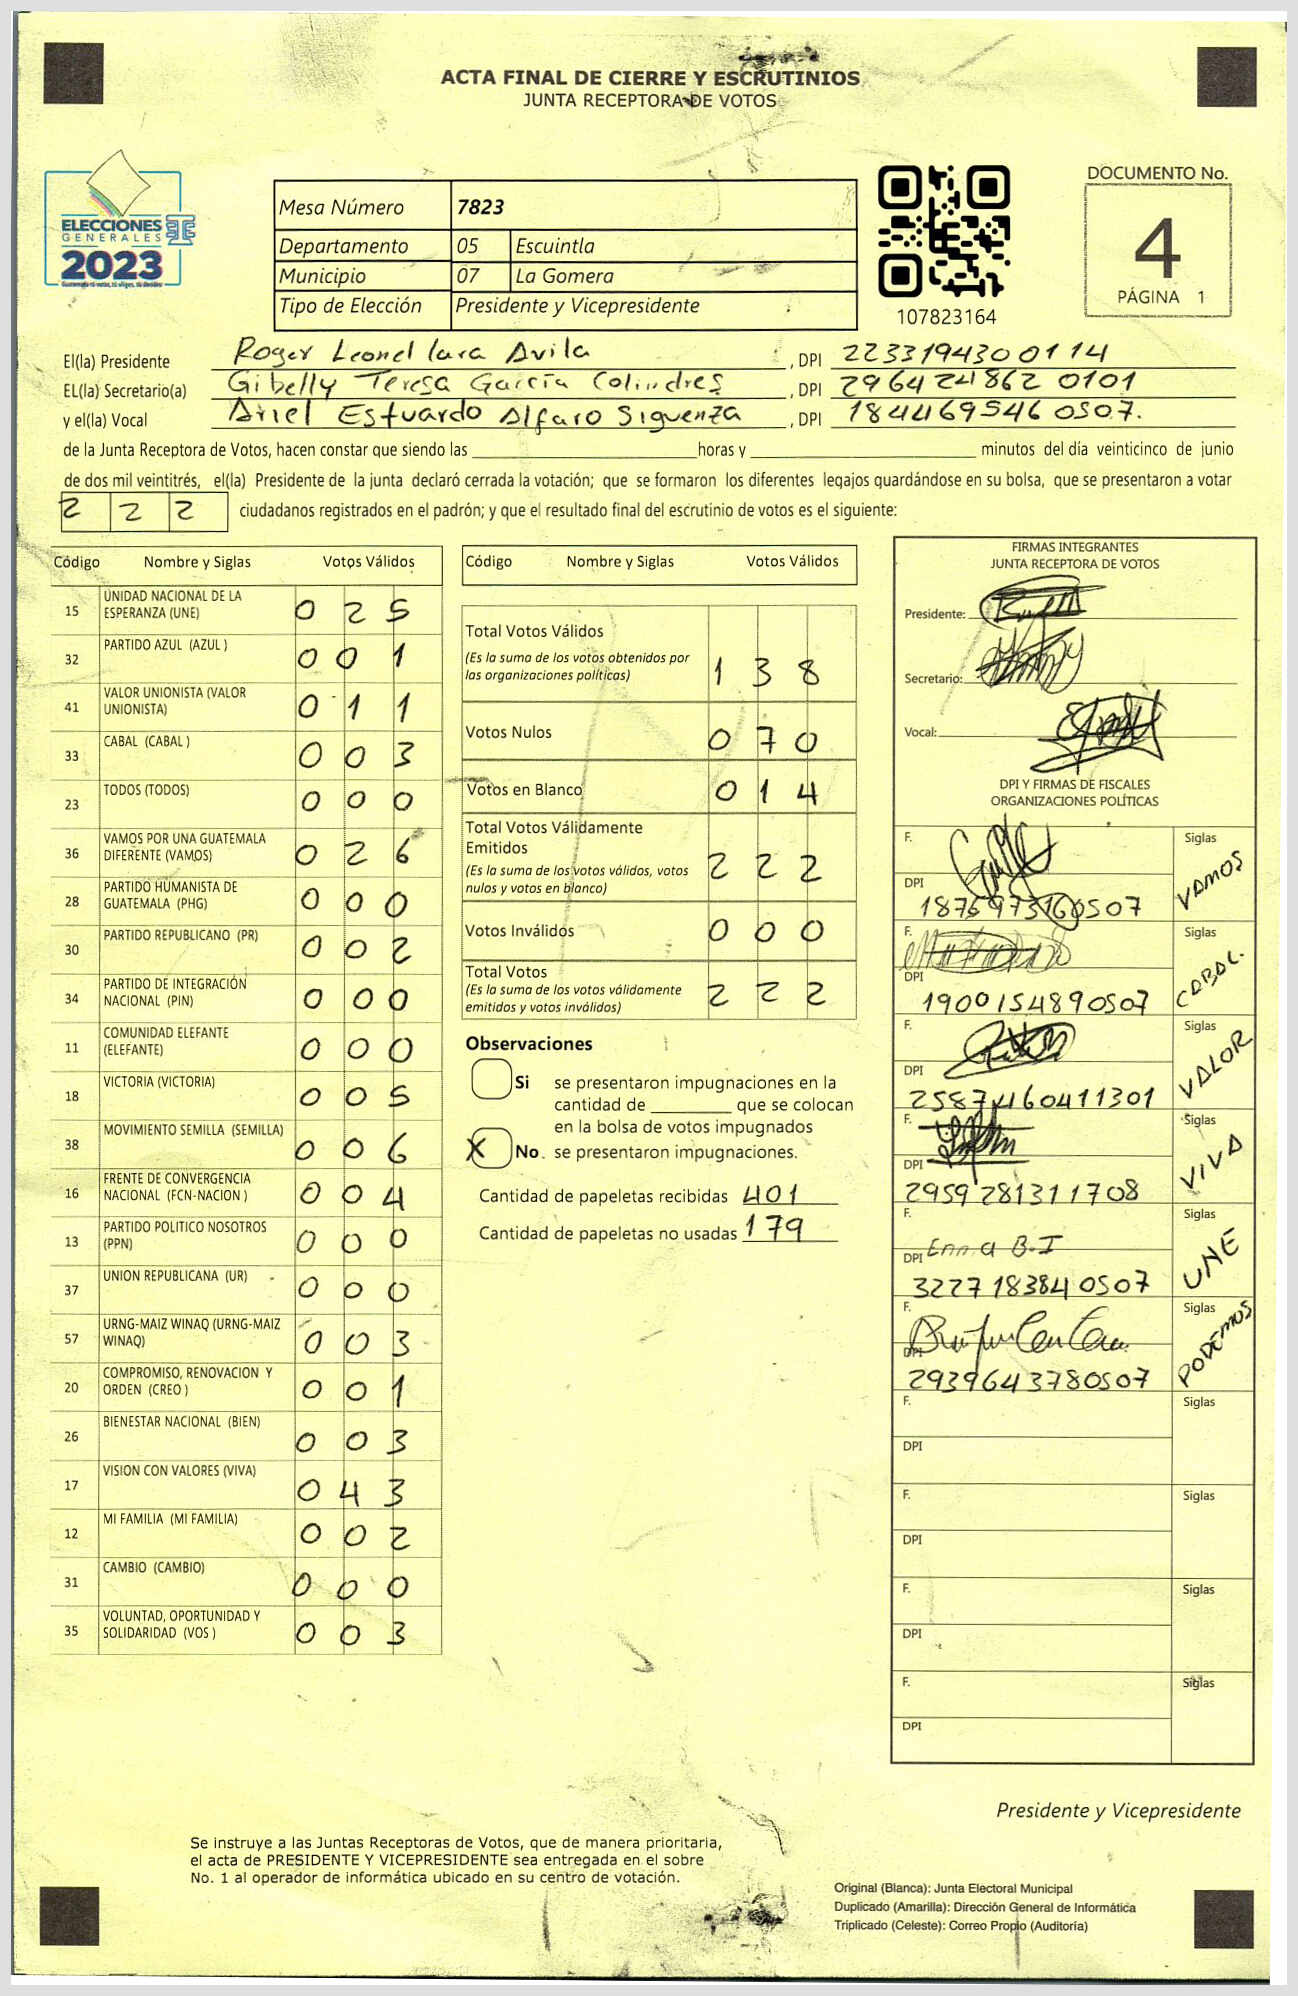 ACTA FINAL DE CIERRE Y ESCRUTINIOS
JUNTA RECEPTORA DE VOTOS
ELECCIONES
GENERALES
2023
Mesa Número 7823
Departamento 05 Escuintla
Municipio 07 La Gomera
Tipo de Elección Presidente y Vicepresidente
107823164
DOCUMENTO No.
4
PÁGINA 1
El(la) Presidente Roger Leonel Lara Avila , DPI 2233194300114
EL(la) Secretario(a) Gibelly Teresa García Colindres , DPI 2964248620101
y el(la) Vocal Ariel Estuardo Alfaro Siguenza , DPI 1844695460507.
de la Junta Receptora de Votos, hacen constar que siendo las ____ horas y ____ minutos del día veinticinco de junio
de dos mil veintitrés, el(la) Presidente de la junta declaró cerrada la votación; que se formaron los diferentes legajos guardándose en su bolsa, que se presentaron a votar
2 2 2 ciudadanos registrados en el padrón; y que el resultado final del escrutinio de votos es el siguiente:
Código Nombre y Siglas Votos Válidos
15 UNIDAD NACIONAL DE LA ESPERANZA (UNE) 0 2 5
32 PARTIDO AZUL (AZUL ) 0 0 1
41 VALOR UNIONISTA (VALOR UNIONISTA) 0 1 1
33 CABAL (CABAL ) 0 0 3
23 TODOS (TODOS) 0 0 0
36 VAMOS POR UNA GUATEMALA DIFERENTE (VAMOS) 0 2 6
28 PARTIDO HUMANISTA DE GUATEMALA (PHG) 0 0 0
30 PARTIDO REPUBLICANO (PR) 0 0 2
34 PARTIDO DE INTEGRACIÓN NACIONAL (PIN) 0 0 0
11 COMUNIDAD ELEFANTE (ELEFANTE) 0 0 0
18 VICTORIA (VICTORIA) 0 0 5
38 MOVIMIENTO SEMILLA (SEMILLA) 0 0 6
16 FRENTE DE CONVERGENCIA NACIONAL (FCN-NACION ) 0 0 4
13 PARTIDO POLITICO NOSOTROS (PPN) 0 0 0
37 UNION REPUBLICANA (UR) 0 0 0
57 URNG-MAIZ WINAQ (URNG-MAIZ WINAQ) 0 0 3
20 COMPROMISO, RENOVACION Y ORDEN (CREO ) 0 0 1
26 BIENESTAR NACIONAL (BIEN) 0 0 3
17 VISION CON VALORES (VIVA) 0 4 3
12 MI FAMILIA (MI FAMILIA) 0 0 2
31 CAMBIO (CAMBIO) 0 0 0
35 VOLUNTAD, OPORTUNIDAD Y SOLIDARIDAD (VOS ) 0 0 3
Código Nombre y Siglas Votos Válidos
Total Votos Válidos 1 3 8
(Es la suma de los votos obtenidos por
las organizaciones políticas)
Votos Nulos 0 7 0
Votos en Blanco 0 1 4
Total Votos Válidamente
Emitidos 2 2 2
(Es la suma de los votos válidos, votos
nulos y votos en blanco)
Votos Inválidos 0 0 0
Total Votos 2 2 2
(Es la suma de los votos válidamente
emitidos y votos inválidos)
Observaciones
Si se presentaron impugnaciones en la
cantidad de ____ que se colocan
en la bolsa de votos impugnados
X No se presentaron impugnaciones.
Cantidad de papeletas recibidas 401
Cantidad de papeletas no usadas 179
FIRMAS INTEGRANTES
JUNTA RECEPTORA DE VOTOS
Presidente:
Secretario:
Vocal:
DPI Y FIRMAS DE FISCALES
ORGANIZACIONES POLÍTICAS
F. Siglas VAMOS
DPI 1875973160507
F. Siglas CABAL.
DPI 1900154890507
F. Siglas VALOR
DPI
F. Siglas VIVA
DPI 2959281311708
F. Siglas UNE
DPI Enna B.I
3227183840507
F. Siglas PODEMOS
DPI
2939643780507
F. Siglas
DPI
F. Siglas
DPI
F. Siglas
DPI
F. Siglas
DPI
Presidente y Vicepresidente
Se instruye a las Juntas Receptoras de Votos, que de manera prioritaria,
el acta de PRESIDENTE Y VICEPRESIDENTE sea entregada en el sobre
No. 1 al operador de informática ubicado en su centro de votación.
Original (Blanca): Junta Electoral Municipal
Duplicado (Amarilla): Dirección General de Informática
Triplicado (Celeste): Correo Propio (Auditoría)